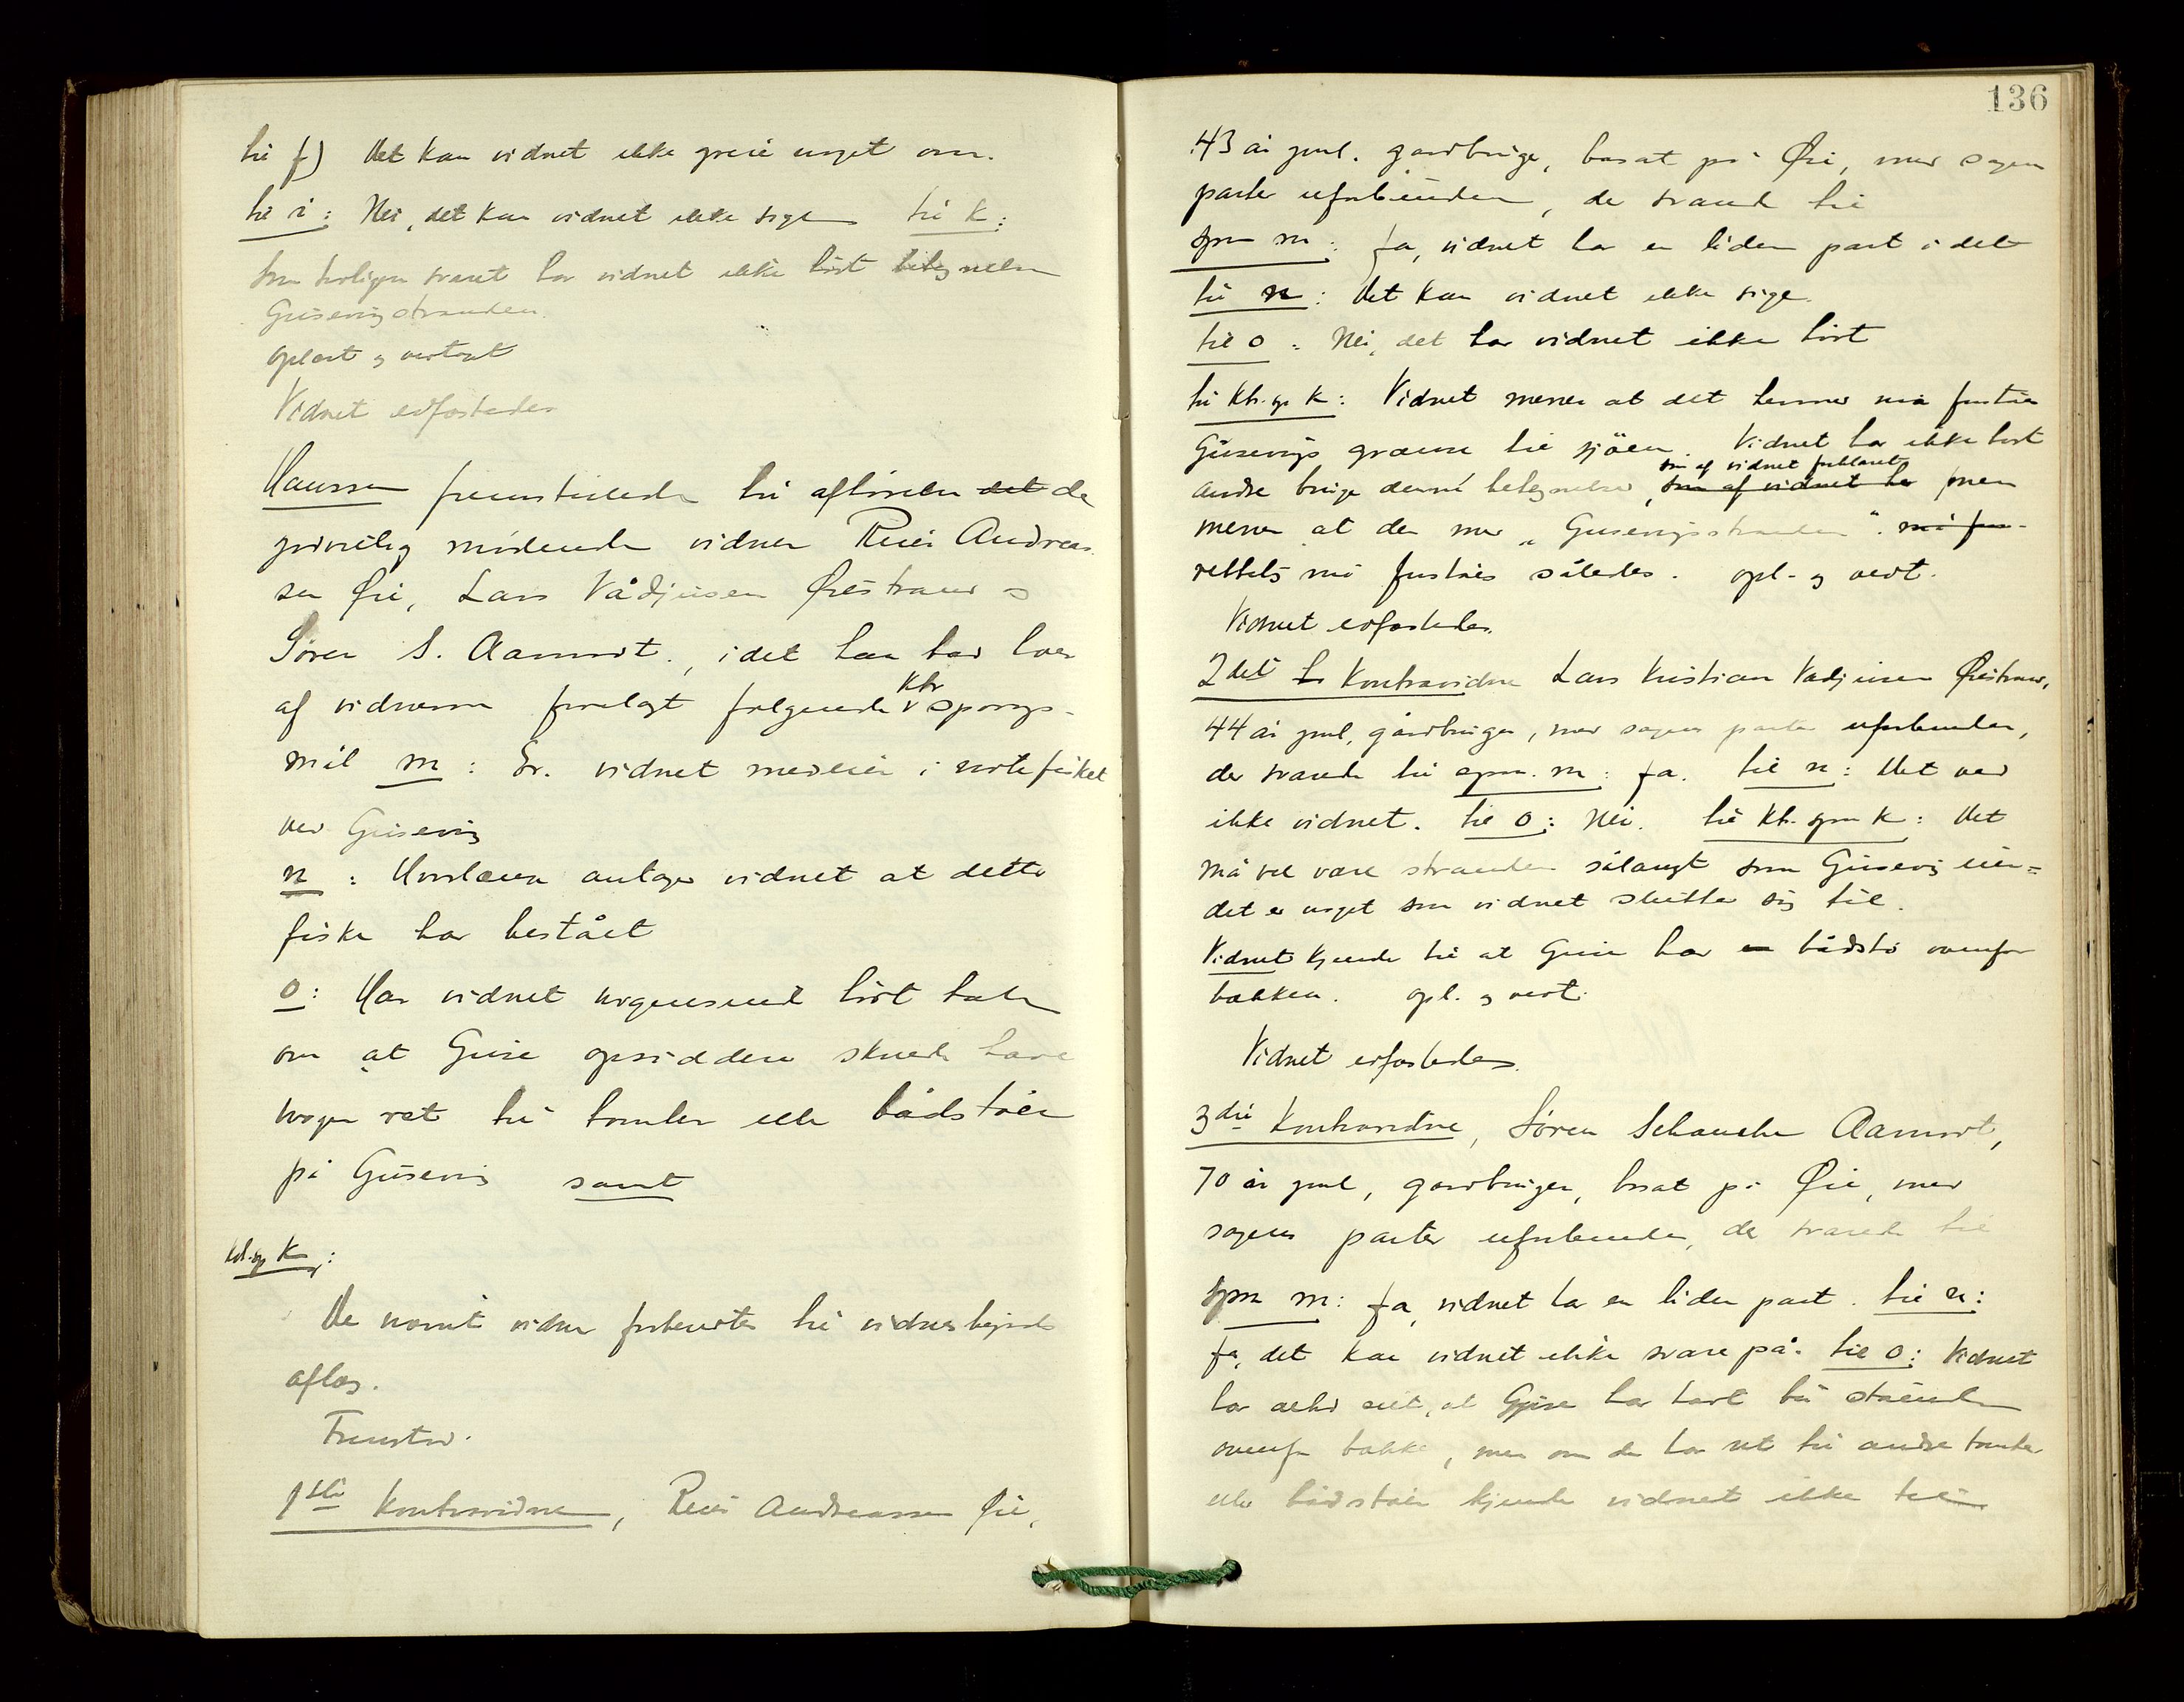 til f) Det kan vidnet ikke greie noget om.
til i: Nei, det kan vidnet ikke sige til k:
Som tidligere svaret har vidnet ikke hört betegnelsen
Gusevigstranden.
Oplæst og vedtaget
Vidnet edfæstedes
Hanssen fremstillede til afhörelse det de
godvillig mödende vidner Reier Andreas-
sen Öie, Lars Vådjusen Öiestrand og
Sören S. Aamodt, idet han bad hver
af vidnerne forelagt fölgende Ktr spörgs-
mål m: Er vidnet medeier i notefisket
ved Gusevig
n: Hvorlænge antager vidnet at dette
fiske har bestået
o: Har vidnet nogensinde hört tale
om at Guse opsiddere skulde have
nogen ret til tomter eller bådstöer
på Gusevig samt
ktr. sp k:
De nævnte vidner forberedtes til vidnesbyrds
aflæg.
Fremstod.
1ste Kontravidne, Reier Andreassen Öie,
136
43 år gml. gårdbruger, bosat på Öie, med sagens
parter uforbunden, der svarede til
Spm m: Ja, vidnet har en liden part i det
til n: Det kan vidnet ikke sige.
til o: Nei, det har vidnet ikke hört
til Ktr. sp k: Vidnet mener at det hermed må forståes
Gusevigs grænse til sjöen. Vidnet har ikke hört
som af vidnet forklaret
andre bruge denne betegnelse, som af vidnet her men
mener at der med "Gusevigsstranden". må for-
rettelig må forståes således. Opl. og vedt.
Vidnet edfæstedes.
2det L Kontravidne Lars Kristian Vadjusen Öiestrand,
44 år gml, gårdbruger, med sagens parter uforbunden,
der svarede til spm. m: Ja. til n: Det ved
ikke vidnet. til o: Nei. til Ktr. spm k: Det
må vel være stranden sålangt som Gusevig eier=
det er noget som vidnet slutter sig til.
Vidnet kjender til at Guse har en bådstö ovenfor
bækken. Opl. og vedt.
Vidnet edfæstedes.
3die Kontravidne, Sören Schanche Aamodt,
70 år gml, gårdbruger, bosat på Öie, med
sagens parter uforbunden, der svarede til
Spm m: Ja, vidnet har en liden part. til n:
Ja, det kan vidnet ikke svare på. til o: Vidnet
har altid vidst, at Guse har havt bå stående
ovenfor bække, men om de har ret til andre tomter
eller bådstöer kjender vidnet ikke til